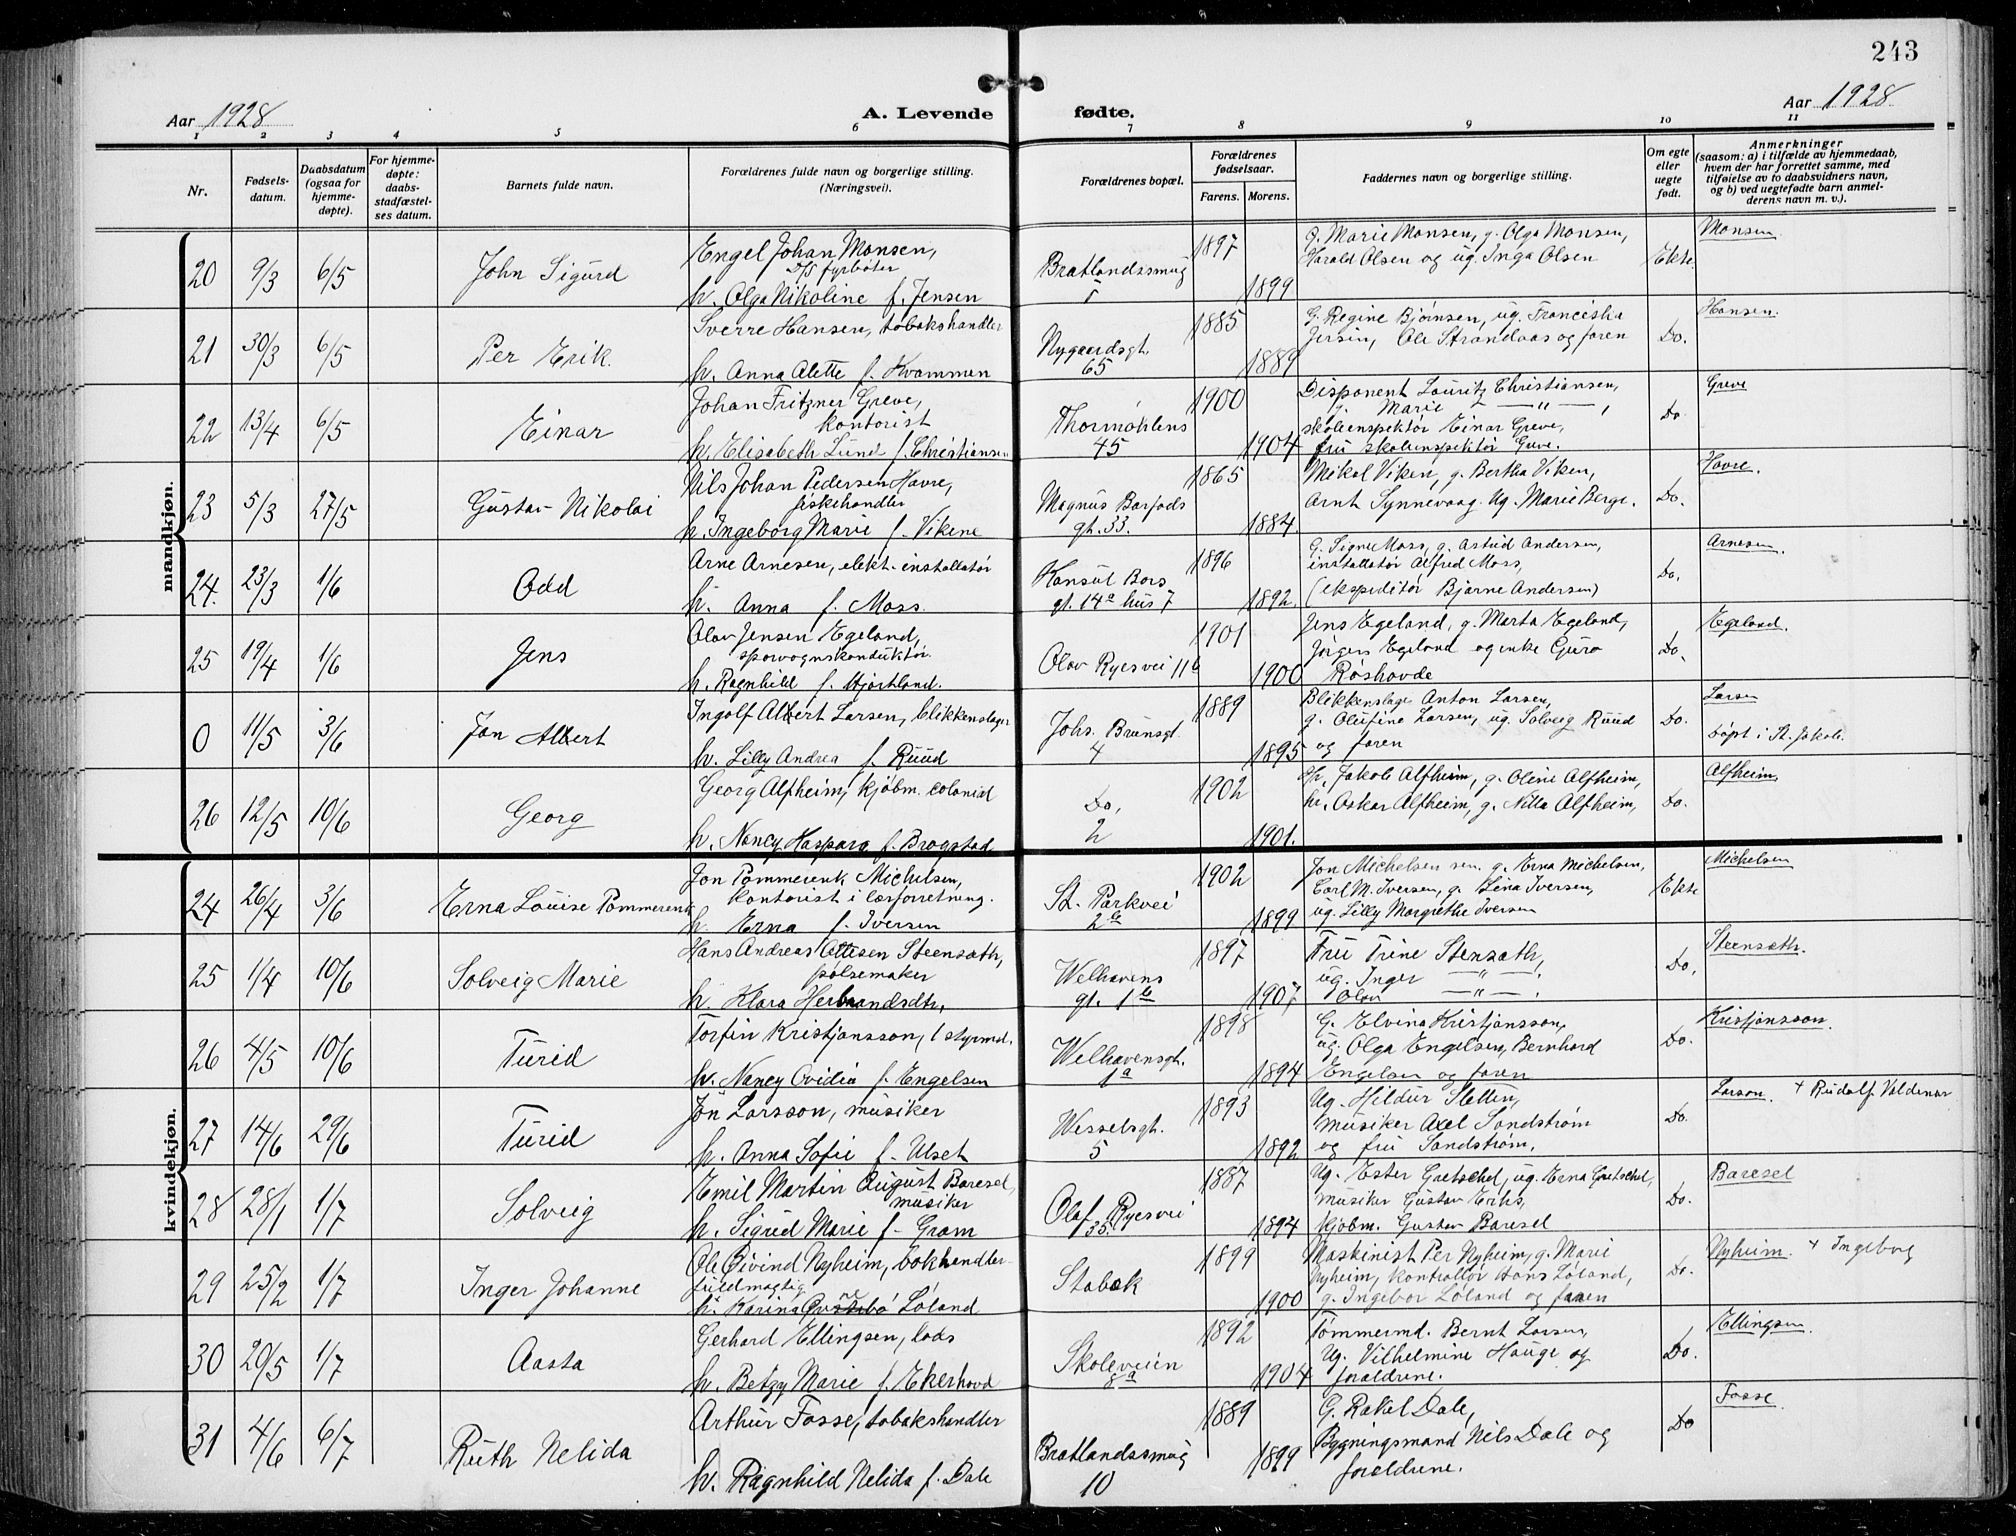 243
Aar 1928
A. Levende
fødte.
Aar 1928
1 2 3 4 5 6 7 8 9 10 11
Nr.
Fødsels-
datum.
Daabsdatum
(ogsaa for
hjemme-
døpte).
For hjemme-
døpte:
daabs-
stadfæstel-
ses datum.
Barnets fulde navn.
Forældrenes fulde navn og borgerlige stilling.
(Næringsvei).
Forældrenes bopæl.
Forældrenes
fødselsaar.
Farens. Morens.
Faddernes navn og borgerlige stilling.
Om egte
eller
uegte
født.
Anmerkninger
(saasom: a) i tilfælde av hjemmedaab,
hvem der har forrettet samme, med
tilføielse av to daabsvidners navn,
og b) ved uegtefødte barn anmel-
derens navn m. v.).
mandkjøn.
20 9/3 6/5 John Sigurd
Engel Johan Monsen,
D/S fyrbøter
h. Olga Nikoline f. Jensen
Bratlandssmug
5
1897
1899
g. Marie Monsen, g. Olga Monsen,
Harald Olsen og ug. Inga Olsen
Ekte
Monsen
21 30/3 6/5 Per Erik.
Sverre Hansen, tobakshandler
h. Anna Alette f. Kvammen
Nygaardsgt.
65
1885
1889
G. Regine Bjørnsen, ug. Franciska
Jersin, Ole Strandaas og faren
Do.
Hansen.
22 13/4 6/5 Einar
Johan Fritzner Greve,
kontorist
h. Elisabeth Lund f. Christiansen
Thormøhlens
45
1900
1904
Disponent Lauritz Christiansen,
g. Marie — " — ,
skoleinspektør Einar Greve,
fru skoleinspektør Greve.
Do.
Greve
23 5/3 27/5 Gustav Nikolai
Nils Johan Pedersen Havre,
fiskehandler
h. Ingeborg Marie f. Vikene
Magnus Barfods
gt. 33.
1865
1884
Mikal Viken, g. Bertha Viken,
Arnt Synnevaag. Ug. Marie Berge.
Do.
Havre.
24. 23/3 1/6 Odd
Arne Arnesen, elekt. installatør
h. Anna f. Moss.
Konsul Børs
gt. 14a hus 7
1896
1892.
G. Signe Moss, g. Astrid Andersen,
installatør Alfred Moss,
(ekspeditør Bjarne Andersen)
Do.
Arnesen.
25 19/4 1/6 Jens
Olav Jensen Egeland,
sporvognskonduktør.
h. Ragnhild f. Hjortland.
Olav Ryesvei 11b
1901
1900
Jens Egeland, g. Marta Egeland,
Jørgen Egeland og enke Guro
Røshovde
Do.
Egeland.
0 11/5 3/6 Jan Albert
Ingolf Albert Larsen, blikkenslager
h. Lilly Andrea f. Ruud
Johs. Brunsgt.
4
1889
1895
Blikkenslage Anton Larsen,
g. Olufine Larsen, ug. Solveig Ruud
og faren
Do.
Larsen
døpt i St. Jakob.
26 12/5 10/6 Georg
Georg Alfheim, kjøbm. colonial
h. Nancy Kaspara f. Brogstad
Do.
2
1902
1901.
Hr. Jakob Alfheim, g. Oline Alfheim,
hr. Oskar Alfheim, g. Nilla Alfheim,
Do.
Alfheim
kvindekjøn.
24 26/4 3/6 Erna Louise Pommerenk
Jon Pommerenk Michelsen,
kontorist i lærforretning.
h. Erna f. Iversen
St. Parkvei
2b
1902
1899
Jon Michelsen sen. g. Erna Michelsen,
Carl M. Iversen, g. Lina Iversen,
ug. Lilly Margrethe Iversen
Ekte
Michelsen
25 1/4 10/6 Solveig Marie
Hans Andreas Ottesen Steensæth,
pølsemaker
h. Klara Herbrandsdtr.
Welhavens
gt. 1b
1897
1907
Fru Trine Stensæth,
ug. Inger — " — .
Olav — " — .
Do.
Steensæth.
26 4/5 10/6 Turid
Torfin Kristjansson, 1 styrmd.
h. Nancy Ovidia f. Engelsen
Welhavensgt.
1a
1898
1894
G. Elvina Kristjansson,
ug. Olga Engelsen, Bernhard
Engelsen og faren
Do.
Kristjansson.
27 14/6 29/6 Turid
Jon Larsson, musiker
h. Anna Sofie f. Ulset
Wesselsgt.
5
1893
1892
Ug. Hildur Sletten,
musiker Axel Sandstrøm
og fru Sandstrøm.
Do.
Larson. + Rudolf Valdemar
28 28/1 1/7 Solveig
Emil Martin August Baresel,
musiker
h. Sigrid Marie f. Gram
Olaf Ryesvei
35.
1887
1894
Ug. Ester Gretschel, ug. Erna Gretschel,
musiker Gustav Eriks,
kjøbm. Gustav Baresel
Do.
Baresel
29 25/2 1/7 Inger Johanne
Ole Øivind Nyheim, bokhandler-
fuldmægtig
h. Karina Løland
Stabæk
1899
1900
Maskinist Per Nyheim, g. Marie
Nyheim, kontrollør Hans Løland,
g. Ingebor Løland og faren
Do.
Nyheim. + Ingeborg
30 20/5 1/7 Aasta
Gerhard Ellingsen, lods
h. Betzy Marie f. Ekerhovd
Skoleveien
8a
1892
1904
Tømmermd. Bernt Larsen,
Ug. Vilhelmine Hauge og
forældrene.
Do.
Ellingsen
31 4/6 6/7 Ruth Nelida
Arthur Fosse, tobakshandler
h. Ragnhild Nelida f. Dale
Bratlandssmug
10
1889
1899
G. Rakel Dale,
Bygningsmand Nils Dale og
forældrene.
Do
Fosse